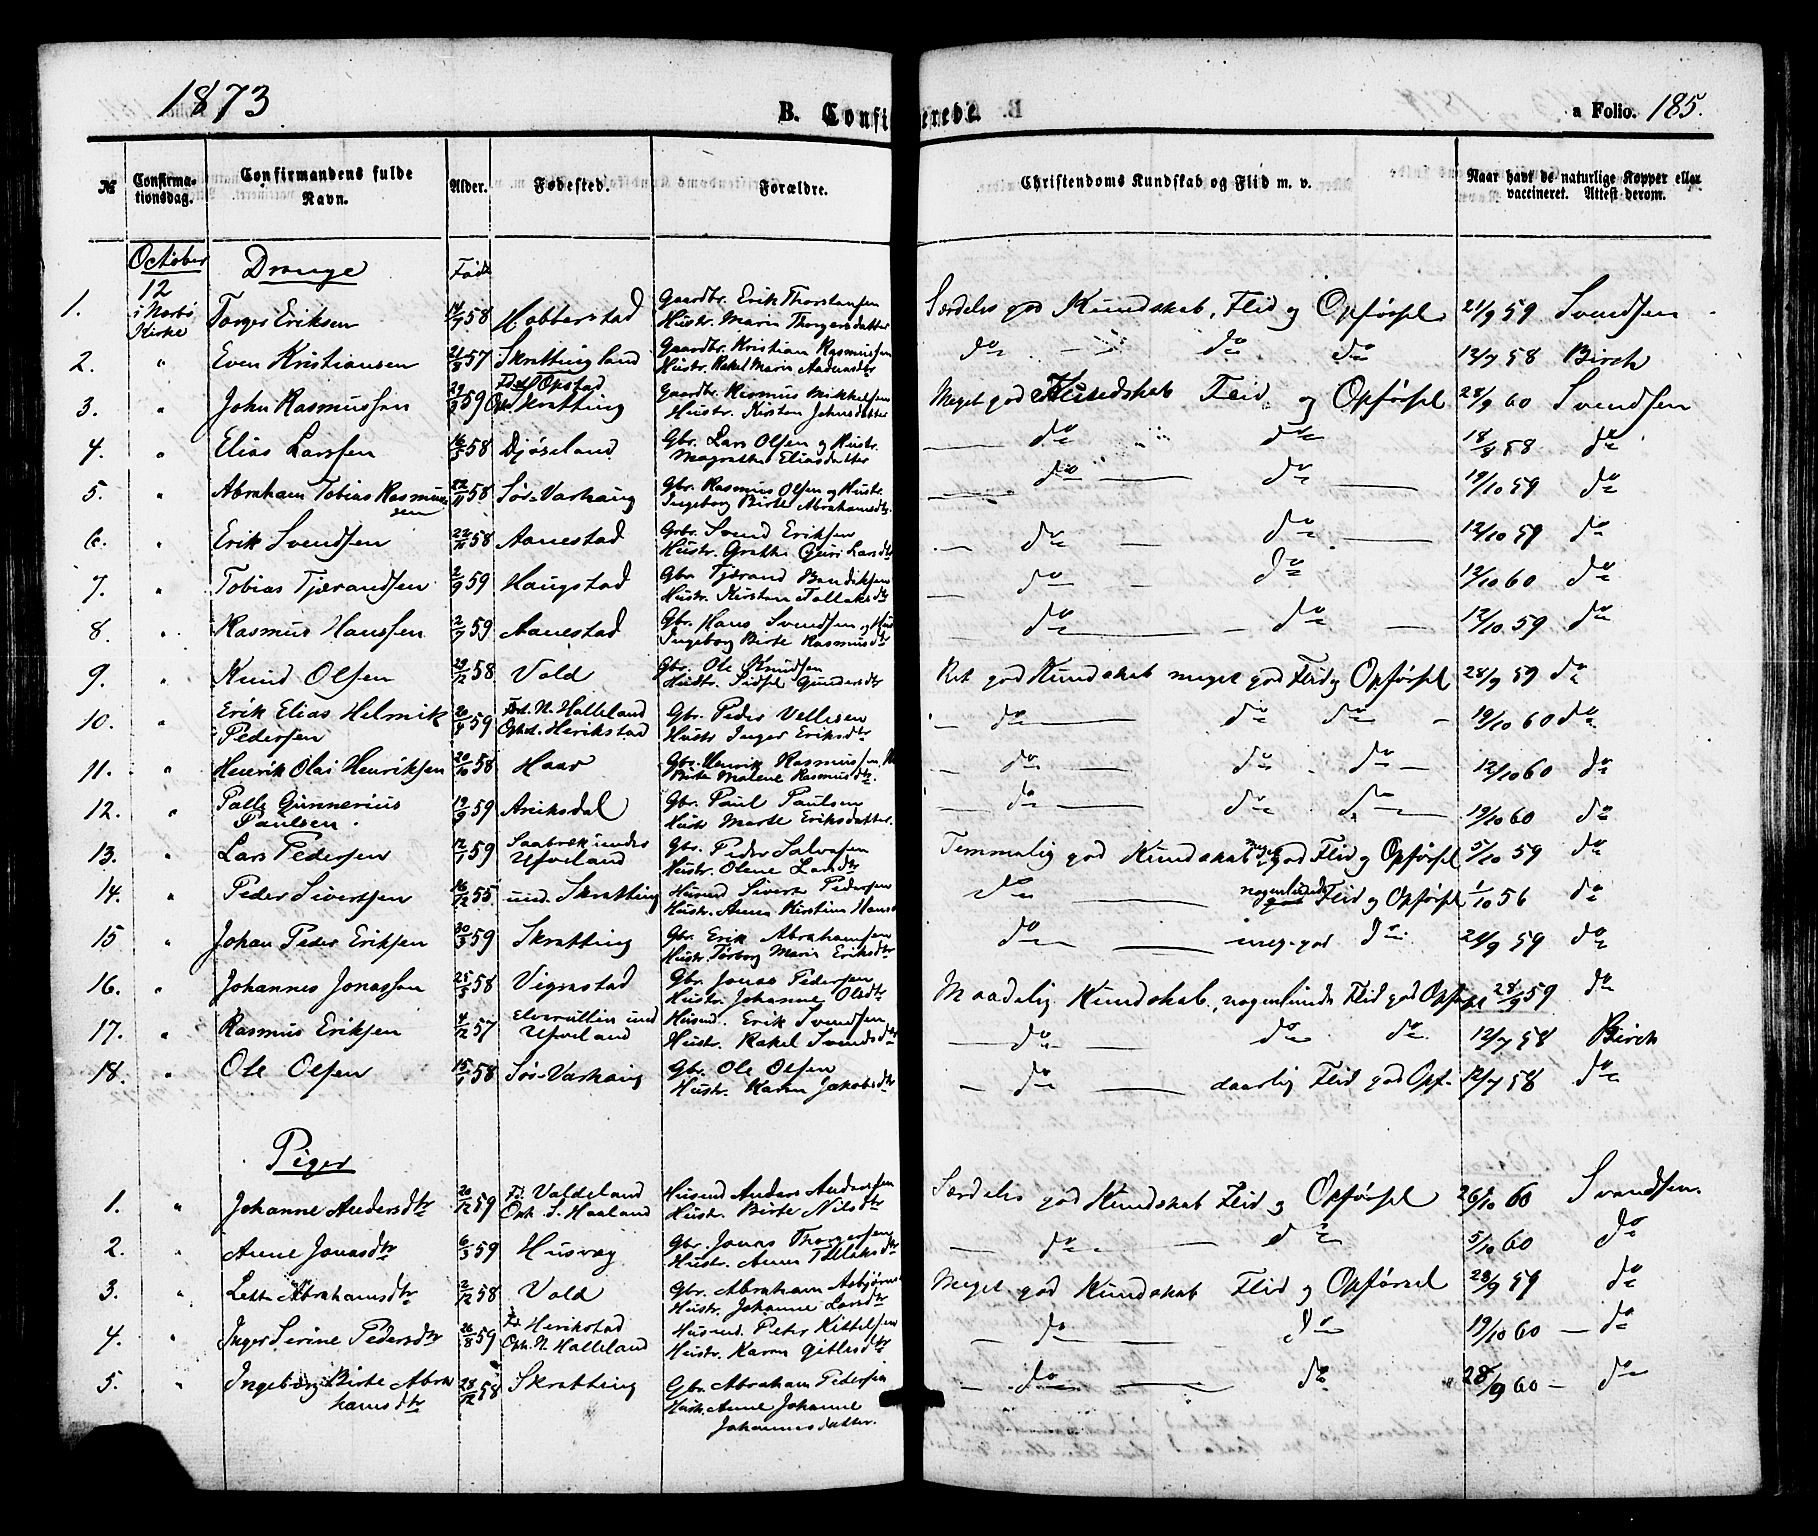 1873
B. Confirmerede.
a Folio. 185.
№ Confirmationsdag. Confirmandens fulde Navn. Alder. Fødested. Forældre. Christendoms Kundskab og Flid m. v. Naar havt de naturlige Kopper eller vaccineret. Attest derom.
October Drenge Født
12 i Nærbø Kirke
1. Torger Eriksen 14/9 58 Hobberstad Gaardbr. Erik Thorstensen Hustr. Maria Thorgersdatter Særdeles god Kundskab, Flid og Opførsel 21/9 59 Svendsen
2. " Even Kristiansen 21/3 57 Skrattingland Gaardbr. Kristian Rasmussen Hustr. Rakel Marie do do do 12/7 58 Birch
3. " John Rasmussen 29/3 59 Fød Opstad Oph. Skratting Gaardbr. Rasmus Mikkelsen Hustr. Kirsten Johnsdatter Meget god Kundskab Flid og Opførsel 28/9 60 Svendsen
4. " Elias Larssen 16/3 58 Djøseland Gbr. Lars Olsen og Hustr. Magrethe Eliasdatter do do 18/9 58 do
5. " Abraham Tobias Rasmussen 22/11 58 Sør-Varhaug Gbr. Rasmus Olsen og Hustr. Ingeborg Birte Abrahamsdtr. do do 19/10 59 do
6. " Erik Svendsen 22/11 58 Aanestad Gbr. Svend Eriksen Hustr. Grethe Guri Larsdtr do do 12/10 59 do
7. " Tobias Tjærandsen 2/9 59 Haugstad Gbr. Tjærand Bendiksen Hustr. Kirsten Tollaksdtr do do 12/10 60 do
8. " Rasmus Hanssen 2/9 59 Aanestad Gbr. Hans Svendsen og Hust Ingeborg Birte Rasmusdtr do do 12/10 59 do
9. " Knud Olsen 29/12 58 Vold Gbr. Ole Knudsen Hustr. Sidsel Gundersdtr Ret god Kundskab meget god Flid og Opførsel 28/9 59 do
10. " Erik Elias Helmik Pedersen 20/4 59 Fød. N. Halleland Oph. Herikstad Gbr. Peder Vellesen Hustr Inger Eriksdtr do do do 19/10 60 do
11. " Henrik Olai Henriksen 20/10 58 Haar Gbr. Henrik Rasmussen, H Birte Malene Rasmusdtr. do do do 12/10 60 do
12. " Palle Gunnerius Paulsen. 19/9 59 Areksdal Gbr. Paul Paulsen Hustr Marte Eriksdatter do do do 19/10 60 do
13. " Lars Pedersen 12/1 59 Saabrek under Ueland Gbr. Peder Salvesen Hustr. Olene Larsdtr Temmelig god Kundskab meget god Flid og Opførsel 5/10 59 do
14. " Peder Sivertsen 16/12 55 und. Skratting Husmd Sivert Pedersen Hustr. Anna Kirstine Hansd do nogenlunde god Flid og Opførsel 1/10 56 do
15 " Johan Peder Eriksen 30/3 59 Skratting Gbr. Erik Abrahamsen Hustr. Torborg Marie Eriksdtr do meg. god do 24/9 59 do
16. " Johannes Jonassen 25/3 58 Vigrestad Gbr. Jonas Pedersen Hustr. Johanne Olsdtr Maadelig Kundskab, nogenlunde Flid god Opførsel 28/9 59 do
17. " Rasmus Eriksen 4/12 57 und Ueland Husmd. Erik Svendsen Hustr. Rakel Svendsdtr do do do 12/7 58 Birch
18. " Ole Olsen 15/1 58 Sør-Varhaug Gbr. Ole Olsen Hustr. Karen Jakobsdtr do daarlig Flid god Opf. 12/7 58 do
Piger
1. " Johanne Andersdtr 20/12 59 Fd. Valdeland Oph. S. Haaland Husmd Anders Andersen Hustr. Birte Nilsdtr Særdeles god Kundskab Flid og Opførsel 26/10 60 Svendsen.
2. " Anne Jonasdtr 6/3 59 Husvæg Gbr. Jonas Thorgersen Hustr. Anna Tollaksdtr do do 5/10 60 do
3. " Lett Abrahamsdtr 2/12 58 Vold Gbr. Abraham Asbjørns Hustr. Johanne Larsdtr Meget god Kundskab Flid og Opførsel 28/9 59 do
4. " Inger Serine Pedersdtr 26/8 59 Fd Herikstad Oph. N. Halleland Husmd. Peter Kittelsen Hustr. Karen Gitlesdtr do do 19/10 60 do
5. " Ingeborg Birte Abrahamsdtr 23/12 58 Skratting Gbr. Abraham Pedersen Hustr. Anne Johanne Johannesdatter. do do 28/9 60 do